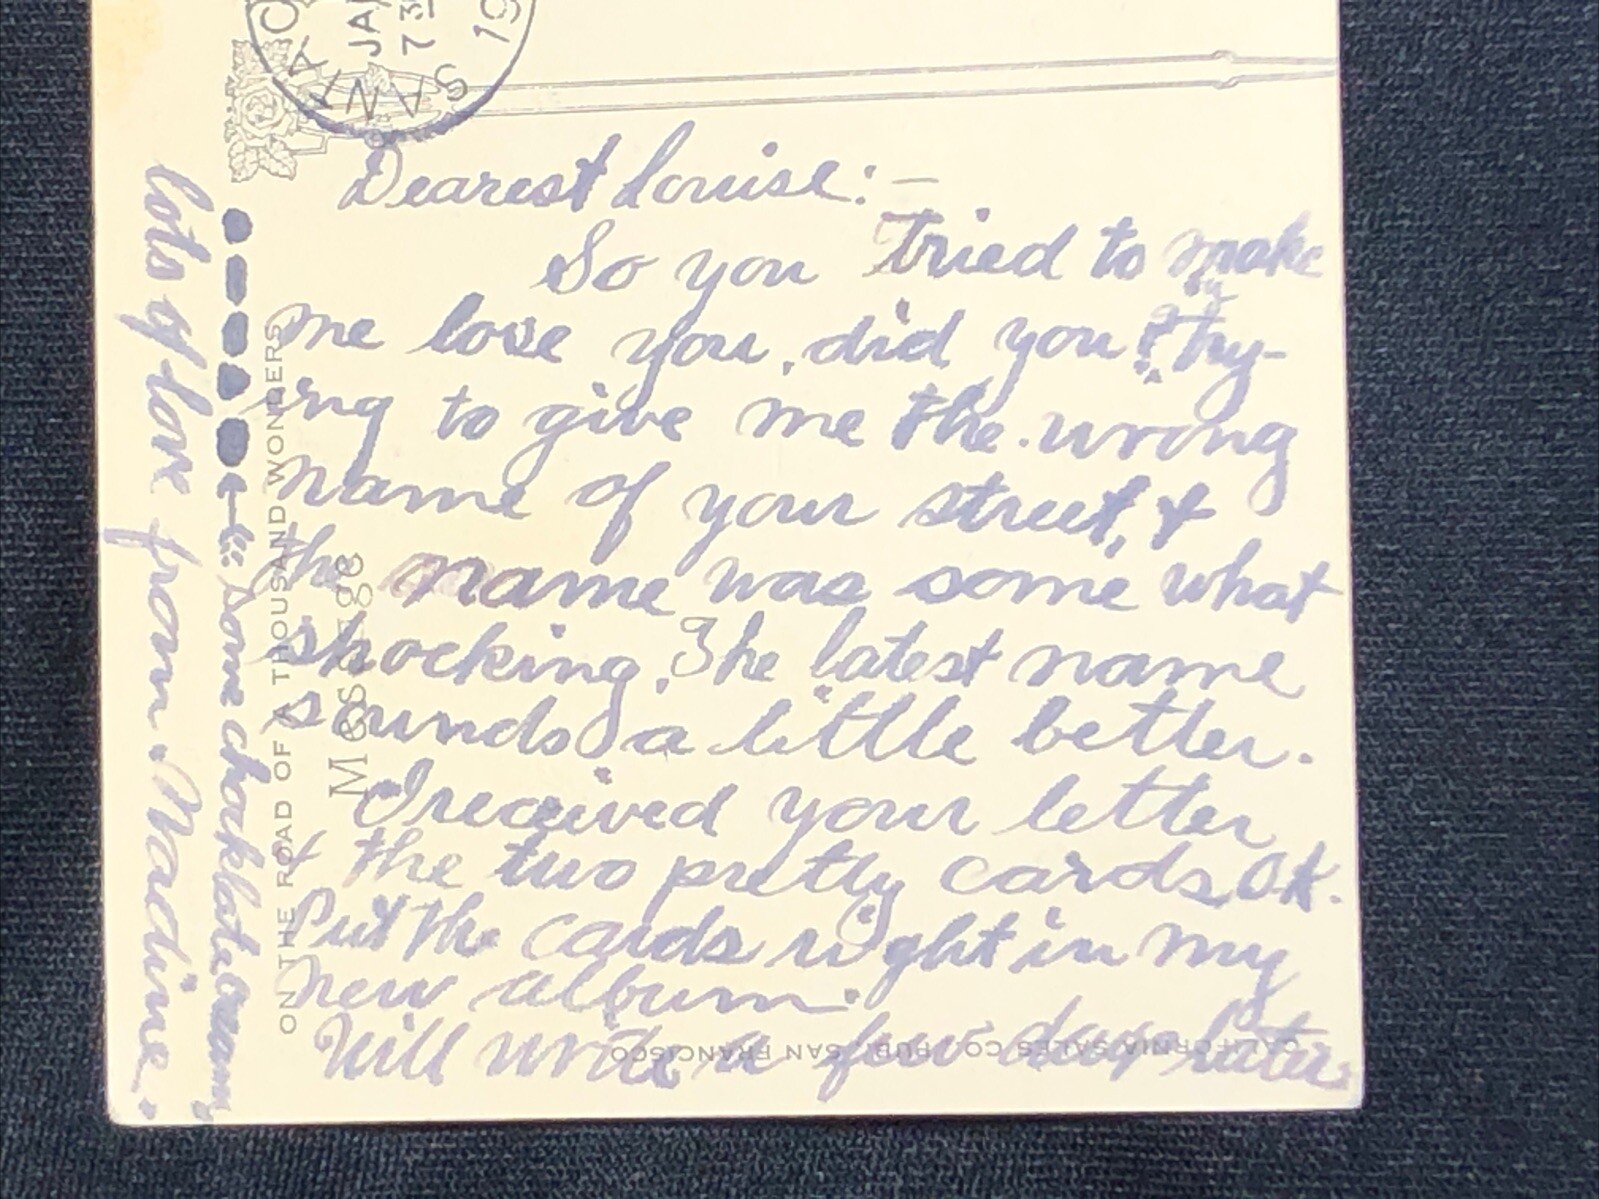 SANTA
JAN
7 3
19
Dearest Louise:—
So you tried to make
me love you, did you? Try-
ing to give me the wrong
name of your street, &
the name was some what
shocking. The latest name
sounds a little better.
I received your letter
& the two pretty cards OK.
Put the cards right in my
new album.
Will write a few days later
some chocklate creams
lots of love from Nadine.
ON THE ROAD OF A THOUSAND WONDERS
Message
CALIFORNIA SALES CO. PUB. SAN FRANCISCO